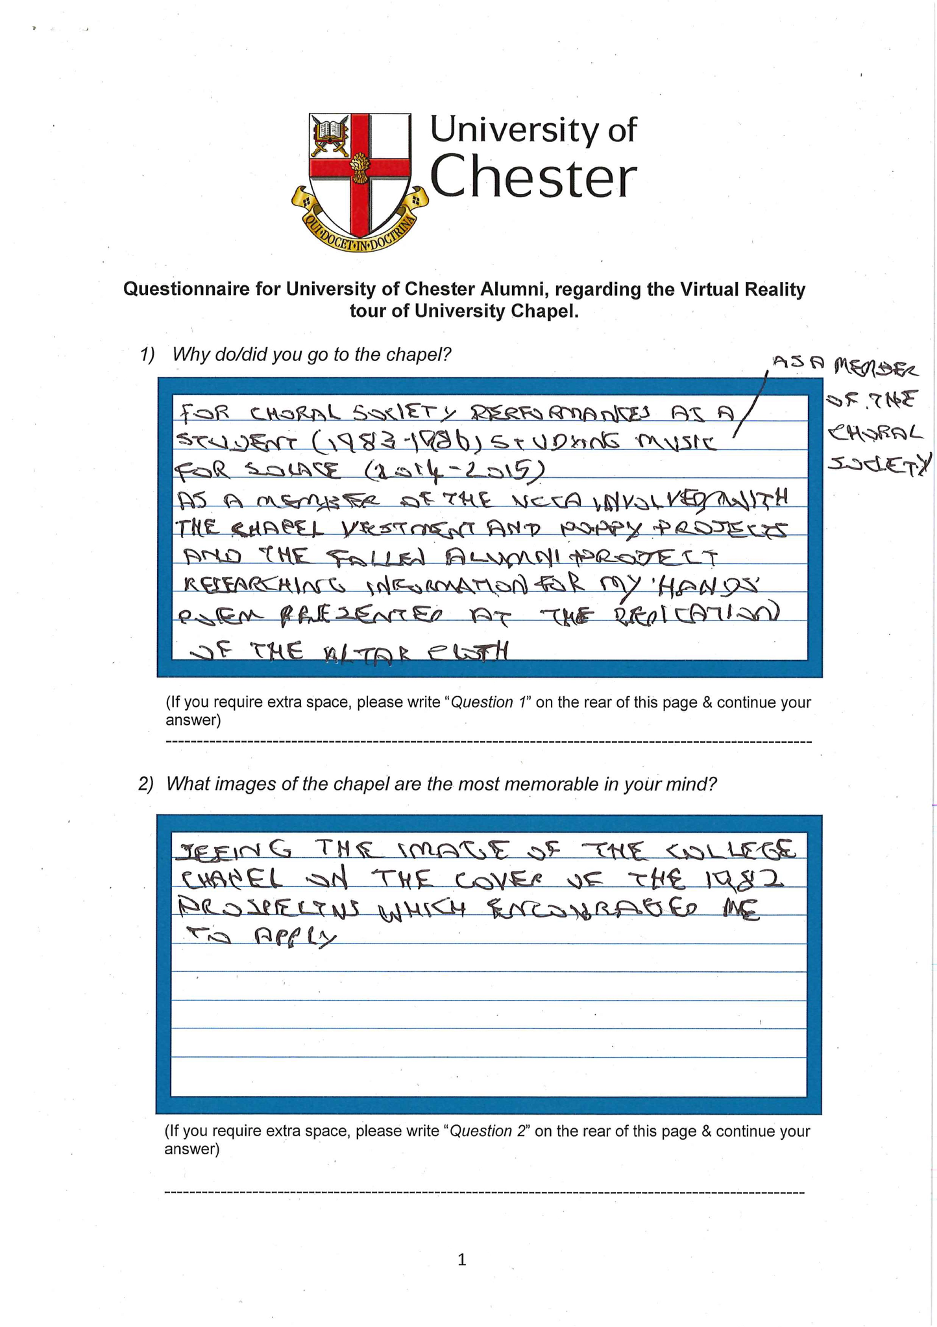 University of
Chester
QUI·DOCET·IN·DOCTRINA
Questionnaire for University of Chester Alumni, regarding the Virtual Reality
tour of University Chapel.
1) Why do/did you go to the chapel?
AS A MEMBER
OF THE
CHORAL
SOCIETY
FOR CHORAL SOCIETY PERFORMANCES AS A
STUDENT (1983-1986) STUDYING MUSIC
FOR SOLACE (2014-2015)
AS A MEMBER OF THE UCCA INVOLVED WITH
THE CHAPEL VESTMENT AND POPPY PROJECTS
AND THE FALLEN ALUMNI PROJECT
RESEARCHING INFORMATION FOR MY 'HANDS'
POEM PRESENTED AT THE DEDICATION
OF THE ALTAR CLOTH
(If you require extra space, please write "Question 1" on the rear of this page & continue your
answer)
2) What images of the chapel are the most memorable in your mind?
SEEING THE IMAGE OF THE COLLEGE
CHAPEL ON THE COVER OF THE 1982
PROSPECTUS WHICH ENCOURAGED ME
TO APPLY
(If you require extra space, please write "Question 2" on the rear of this page & continue your
answer)
1